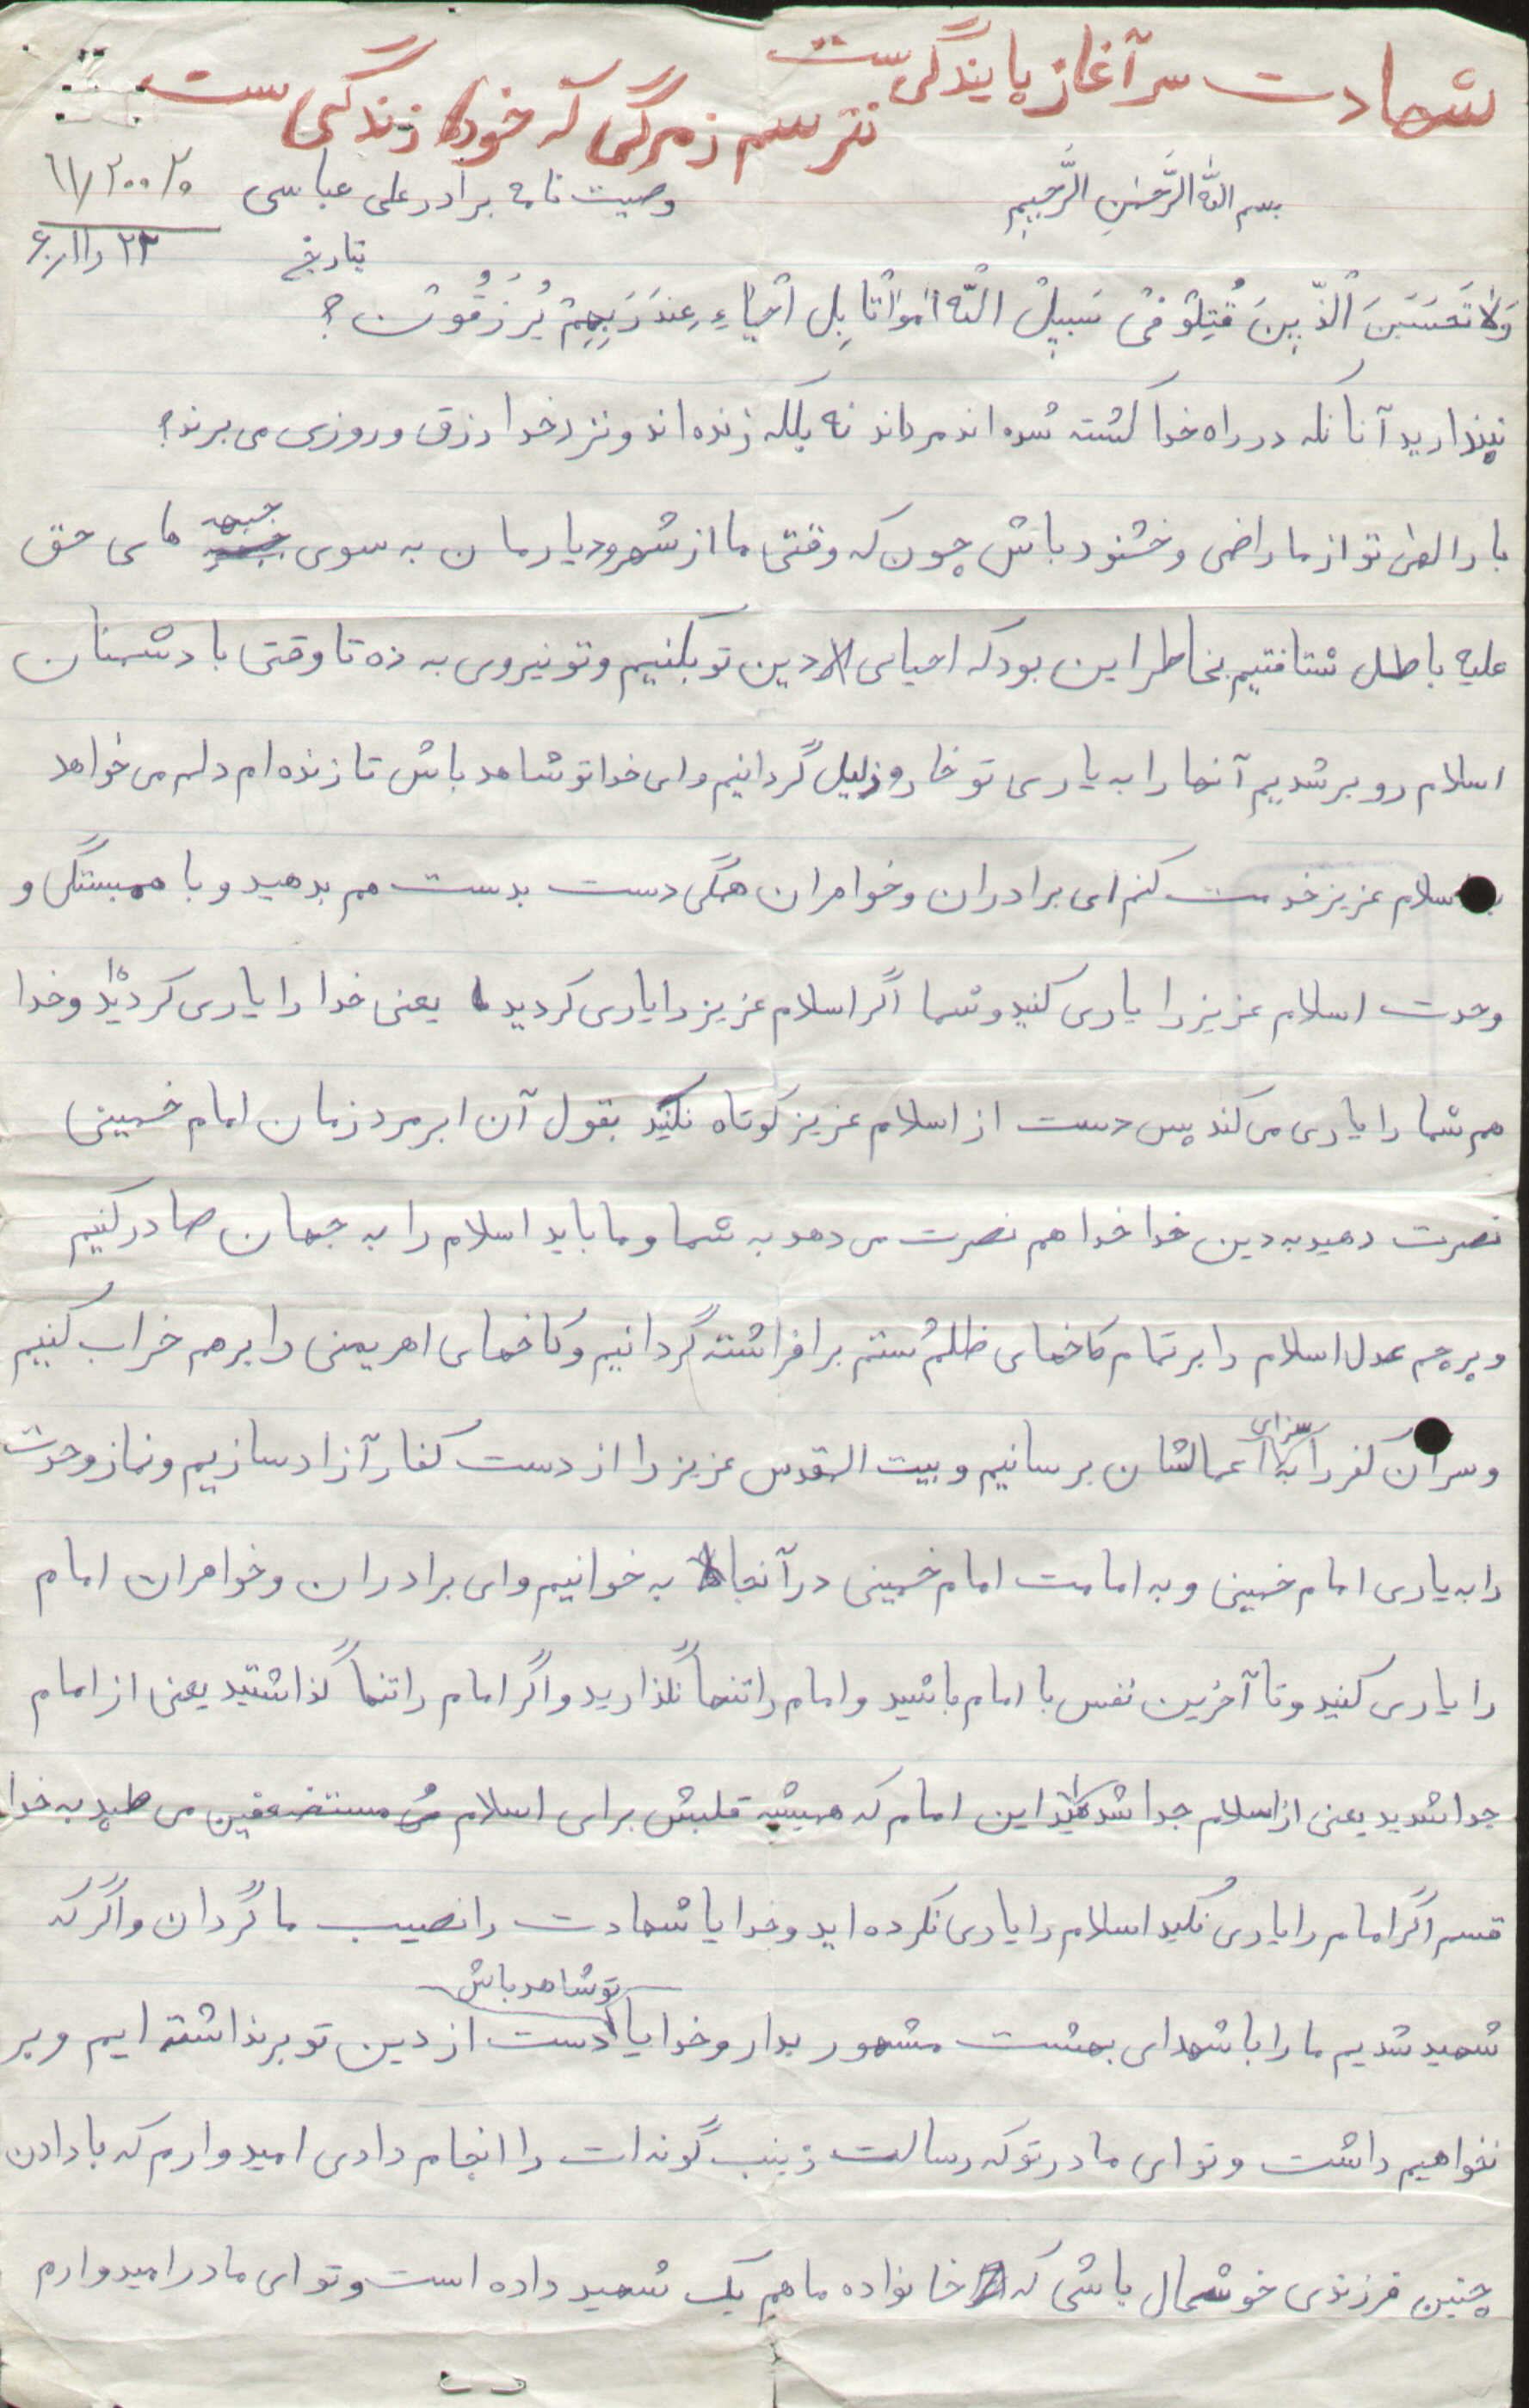 شهادت سرآغاز پایندگی ست
نترسم ز مرگی که خود زندگی ست
بسم الله الرَّحمٰنِ الرَّحیمِ
وصیت نامه برادر علی عباسی
تاریخ
۲۳/۱۱/۶۰
وَلا تَحسَبَنَ الَّذینَ قُتِلوْ فیْ سَبیلِ اللَّه اَمْواتا بِل اَحْیاءِ عِندَ رَبِهِمْ یُرْزَقُونْ ؟
نپندارید آنانکه در راه خدا کشته شده اند مرداند نه بلکه زنده اند و نزد خدا رزق و روزی می برند؟
بارالهی تو از ما راضی و خشنود باش چون که وقتی ما از شهر و دیارمان به سوی جبهه های حق
علیه باطل شتافتیم بخاطر این بود که احیای دین تو بکنیم و تو نیروی به ده تا وقتی با دشمنان
اسلام روبر شدیم آنها را به یاری تو خار و زلیل گردانیم و ای خدا تو شاهد باش تا زنده ام دلم می خواهد
به اسلام عزیز خدمت کنم ای برادران و خواهران همگی دست بدست هم بدهید و با همبستگی و
وحدت اسلام عزیز را یاری کنید و شما اگر اسلام عزیز را یاری کردید یعنی خدا را یاری کرده اید و خدا
هم شما را یاری می کند پس دست از اسلام عزیز کوتاه نکنید بقول آن ابرمرد زمان امام خمینی
نصرت دهید به دین خدا خدا هم نصرت می دهد به شما و ما باید اسلام را به جهان صادر کنیم
و پرچم عدل اسلام را بر تمام کاخهای ظلم ستم برافراشته گردانیم و کاخهای اهریمنی را برهم خراب کنییم
و سران کفر را به سزای اعمالشان برسانیم و بیت القدس عزیز را از دست کفار آزاد سازیم و نماز وحدت
را به یاری امام خمینی و به امامت امام خمینی در آنجا به خوانیم و ای برادران و خواهران امام
را یاری کنید و تا آخرین نفس با امام باشید و امام را تنها نگذارید و اگر امام را تنها گذاشتید یعنی از امام
جدا شدید یعنی از اسلام جدا شده اید این امام که همیشه قلبش برای اسلام مستضعفین می طپد به خدا
قسم اگر امام را یاری نکید اسلام را یاری نکرده اید و خدایا شهادت را نصیب ما گردان و اگر که
شهید شدیم ما را با شهدای بهشت مشهور بدار و خدایا تو شاهد باش دست از دین تو برنداشته ایم و بر
نخواهیم داشت و تو ای مادر تو که رسالت زینب گونه ات را انجام دادی امیدوارم که با دادن
چنین فرزندی خوشحال باشی که خانواده ما هم یک شهید داده است و تو ای مادر امیدوارم